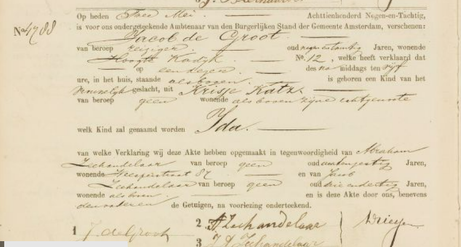 Op heden twee Mei Achttienhonderd Negen-en-Tachtig,
No 4788 is voor ons ondergeteekende Ambtenaar van den Burgerlijken Stand der Gemeente Amsterdam, verschenen:
Jacob de Groot
van beroep reiziger oud negen en twintig Jaren, wonende
Hoogte Kadijk No. 12, welke heeft verklaard dat
op een dezer, des na middags ten
ure, in het huis, staande alsboven is geboren een Kind van het
Vrouwelijk geslacht, uit Katz
van beroep geen wonende als boven zijne echtgenoote
welk Kind zal genaamd worden Ida
van welke Verklaring wij deze Akte hebben opgemaakt in tegenwoordigheid van Abraham
Zeehandelaar van beroep geen oud Jaren,
wonende Weesperstraat en van
Zeehandelaar van beroep geen oud Jaren,
wonende als en is deze Akte door ons, benevens
de Getuigen, na voorlezing onderteekend.
1 J. de Groot 2 A Zeehandelaar
3 Zeehandelaar